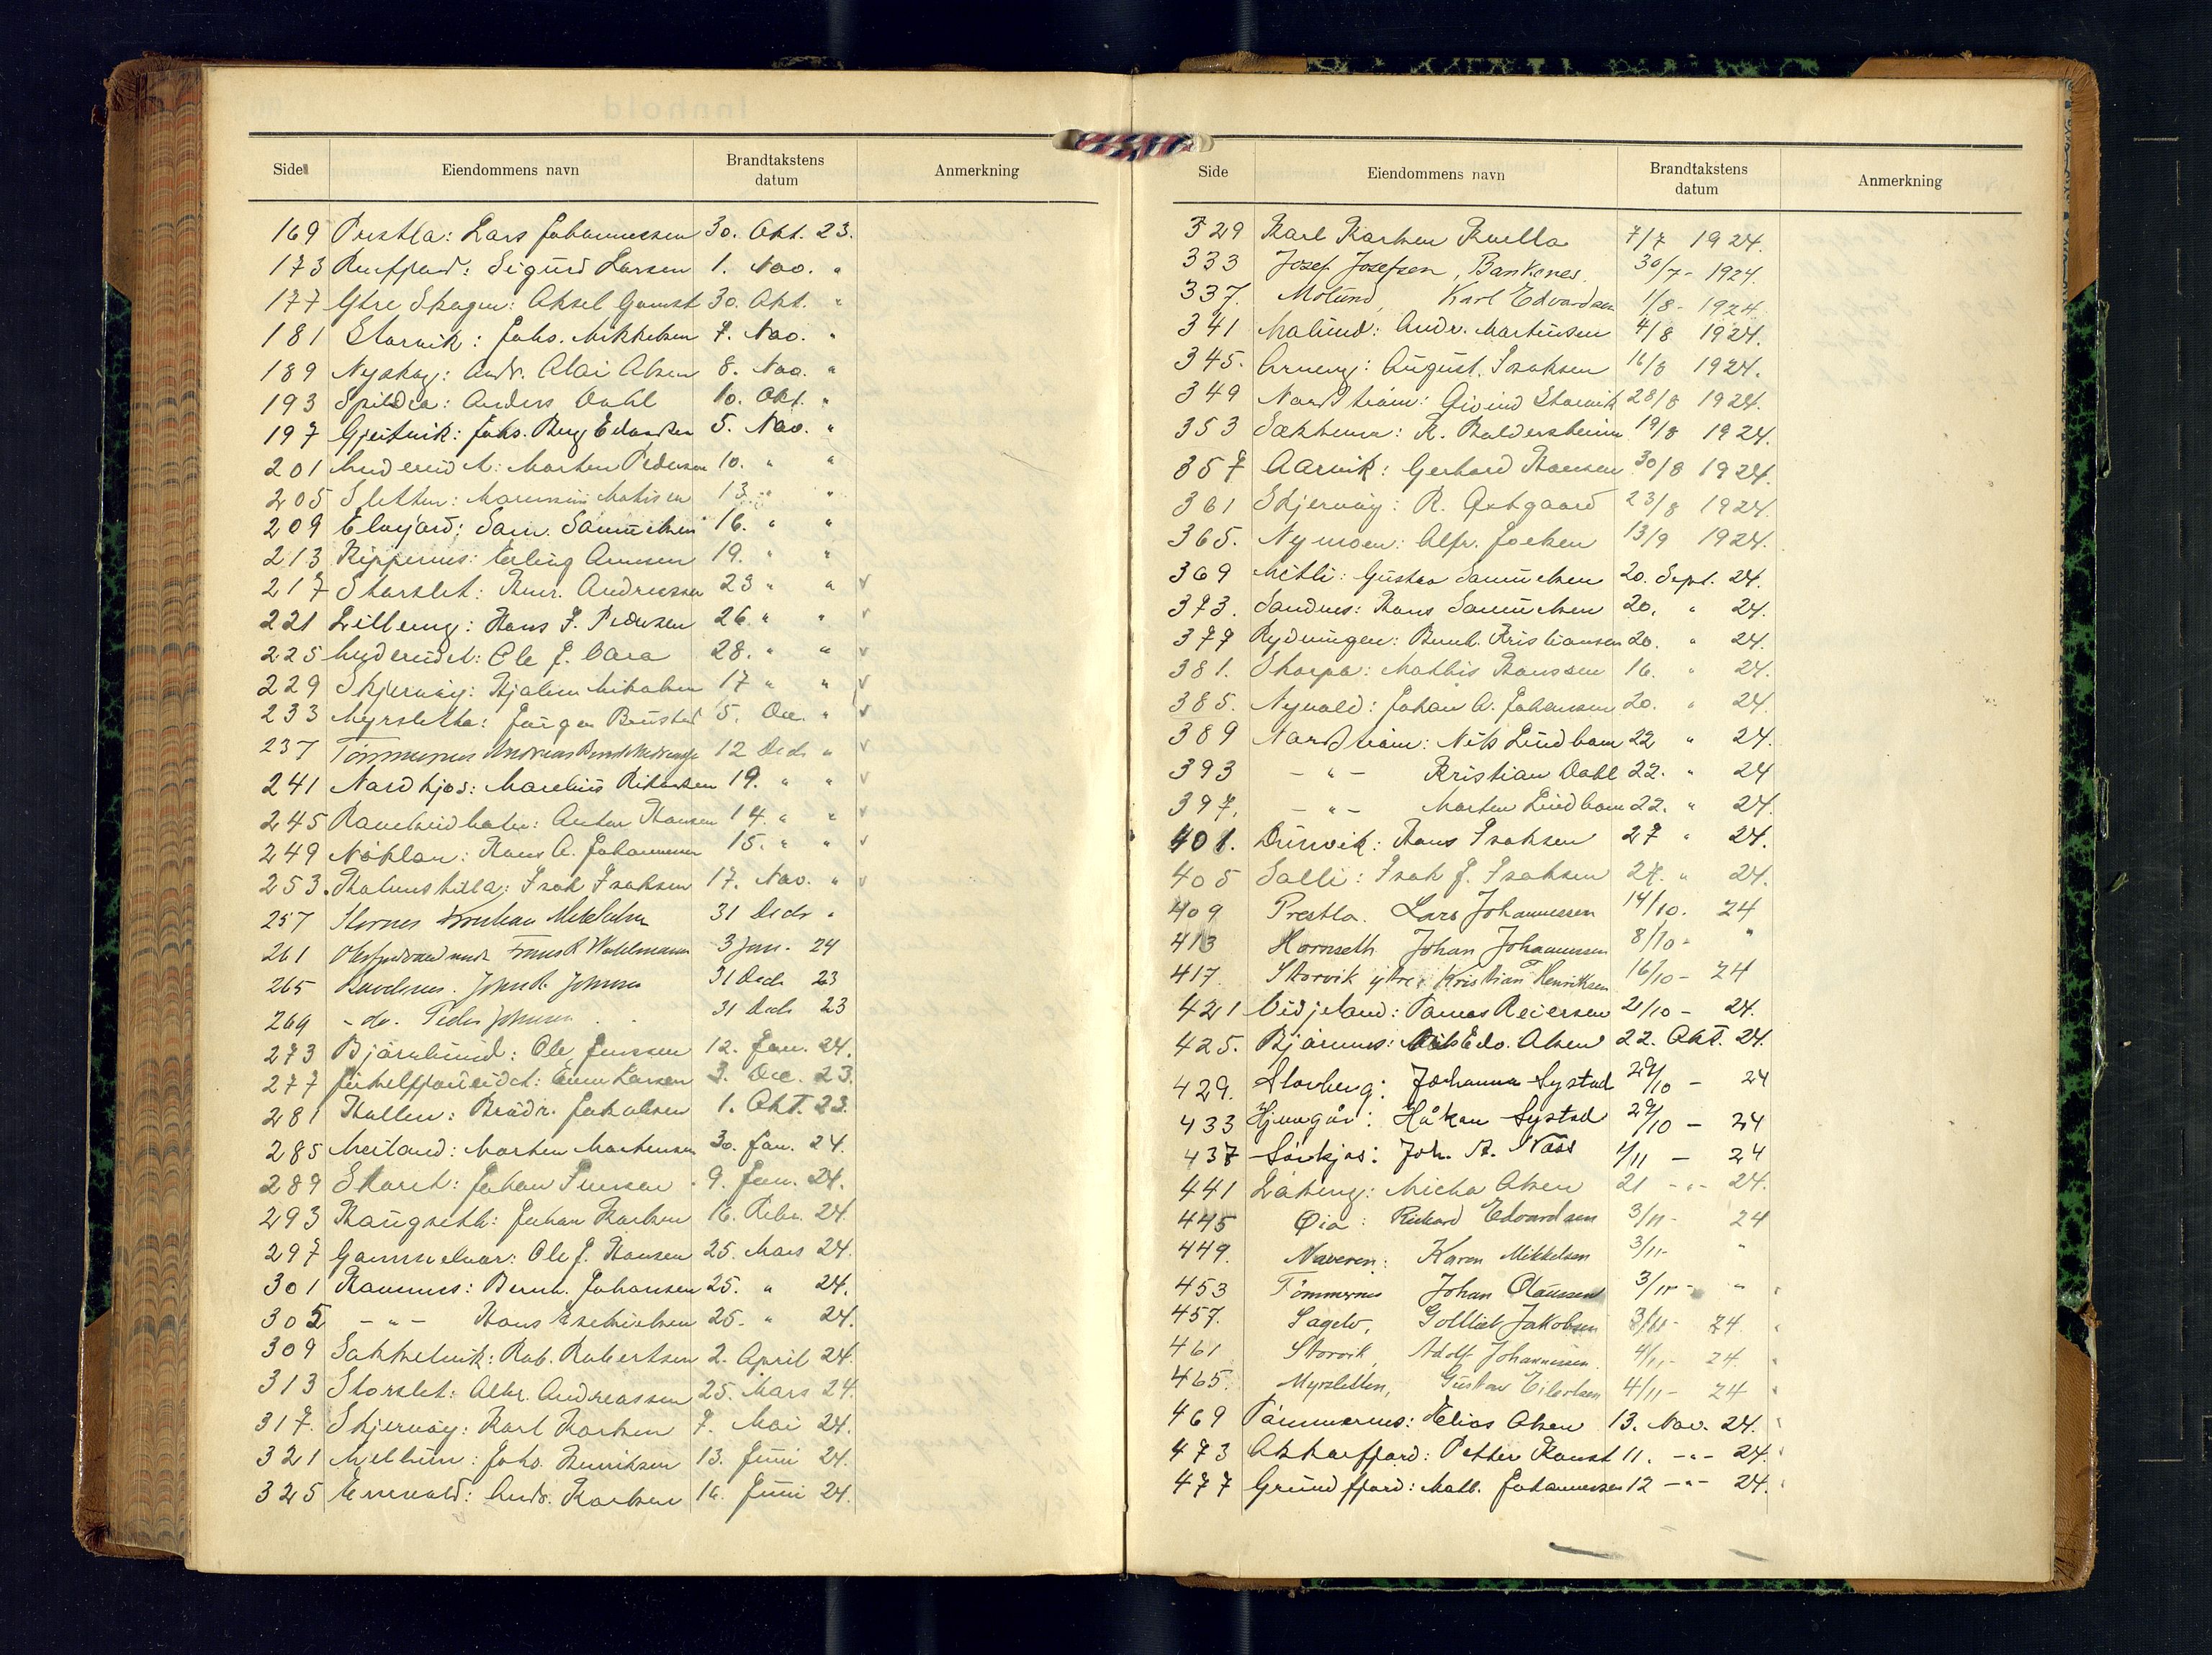 Side Eiendommens navn Brandtakstens datum Anmerkning
169 Prestla: Lars Johannessen 30. Okt. 23.
173 Reisfjord: Sigurd Larsen 1. Nov. "
177 Ytre Skagen: Aksel Gamst 30. Okt. "
181 Storvik: Johs. Mikkelsen 7. Nov. "
189 Nyskog: Andr. Olai Olsen 8. Nov. "
193 Spildra: Anders Dahl 10. Okt. "
197 Gjeitvik: Johs. Berg Edvardsen 5. Nov. "
201 Mudereidet: Morten Pedersen 10. " "
205 Sletten: Mathisen 13. " "
209 Elvejord: Sam. Samuelsen 16. " "
213 Rippernes: Erling Arnesen 19. " "
217 Storslet: Henr. Andreassen 23 " " v
221 Lilleeng: Hans J. Pedersen 26. " " v
225 Mudereidet: Ole J. Vara 28. " " v
229 Skjervøy: Hjalmar Mikalsen 17 " " v
233 Myrsletta: Jørgen 5. Dec. " v
237 Tömmernes Andreas 12 Decbr " v
241 Nordkjos: Marelius Rikardsen 19. " " v
245 Anton Hansen 14. " " v
249 Nöklan: Hans A. Johannessen 15. " " v
253. Isak Isaksen 17. Nov. " v
257 Mikkelsen 31 Decbr "
261 Wahlmann 3 Jan. 24
265 John R. Johnsen 31 Decbr 23
269 - do. Peder Johnsen 31 Decbr 23
273 Björklund: Ole Jenssen 12. Jan. 24.
277 Jökelfjordeidet: Einar Larsen 3. Dec. 23.
281 Hallen: Brødr. Jakobsen 1. Okt. 23.
285 Meiland: Morten Mortensen 30. Jan. 24.
289 Johan Iversen 9. Jan. 24.
293 Haugseth: Johan Karlsen 16. Febr. 24.
297 Gammelvær: Ole J. Hansen 25. Mars 24.
301 Havnnes: Bernh. Johansen 25. " 24.
305 - " - Hans Esekielsen 25. " 24.
309 Sakkelvik: Rob. Robertsen 2. April 24.
313 Storslet: Albr. Andreassen 25. Mars 24.
317. Skjervøy: Karl Karlsen 7. Mai 24.
321 Mellum: Johs. Henriksen 13. Juni 24.
325 Enevold: Andr. Karlsen 16. Juni 24.
Side Eiendommens navn Brandtakstens datum Anmerkning
329 Karl Karlsen Kvella 7/7 1924.
333 Josef Josefsen, Bankenes. 30/7 - 1924.
337. Molund, Karl Edvardsen 1/8 - 1924.
341 Molund: Andr. Martinsen 4/8 1924.
345. Arneng: August. Isaksen 16/8 1924.
349 Nordstrøm: Eivind Storvik 28/8 1924.
353 Sækkemo: K. Baldersheim 19/8 1924.
357 Aarvik: Gerhard Hansen 30/8 1924.
361 Skjervøy: R. Østgaard 23/8 1924.
365. Nymoen: Alfr. Joelsen 13/9 1924.
369 Mitli: Gustav Samuelsen 20. Sept. 24.
373. Sandnes: Hans Samuelsen 20. " 24.
377 Rydningen: Bernh. Kristiansen 20. " 24.
381. Skorpa: Mathis Hanssen 16. " 24.
385. Nyvold: Johan A. Johansen 20. " 24.
389 Nordstrøm: Nils Lindbom 22 " 24.
393 - " - Kristian Dahl 22. " 24
397. - " - Morten Lindbom 22. " 24.
401. Dunvik: Hans Isaksen 27 " 24.
405 Solli: Isak J. Isaksen 27. " 24.
409 Prestla. Lars Johannessen 14/10. 24
413 Hornseth Johan Johannessen 8/10 - "
417. Storvik ytre, Kristian Henriksen 16/10 - 24
421 Vidjeland: Tomas Reiersen 21/10 - 24.
425. Bjørnnes: Nils Edv. Olsen 22. Okt. 24.
429. Storberg: Johanna Systad 29/10 - 24
433 Hjemgår: Håkan Systad 29/10 - 24
437 Sørkjos: Joh. A. Næss 1/11 - 24
441 Låkeng: Micha Olsen 21 - " - 24.
445 Øia: Rickard Edvardsen 3/11 - 24
449. Naveren: Karen Mikkelsen 3/11- "
453 Tømmernes Johan Claussen 3/11 - "
457. Sagelv, Gotlieb Jakobsen 3/11 - 24.
461 Storvik, Adolf Johannessen. 4/11- 24.
465. Myrsletten, Gustav Eilertsen 4/11 - 24
469 Tømmernes: Elias Olsen 13. Nov. 24.
473 Akkarfjord: Petter Hamst 11. - " - 24.
477 Grundfjord: Math. Johannessen 12 - " - 24.